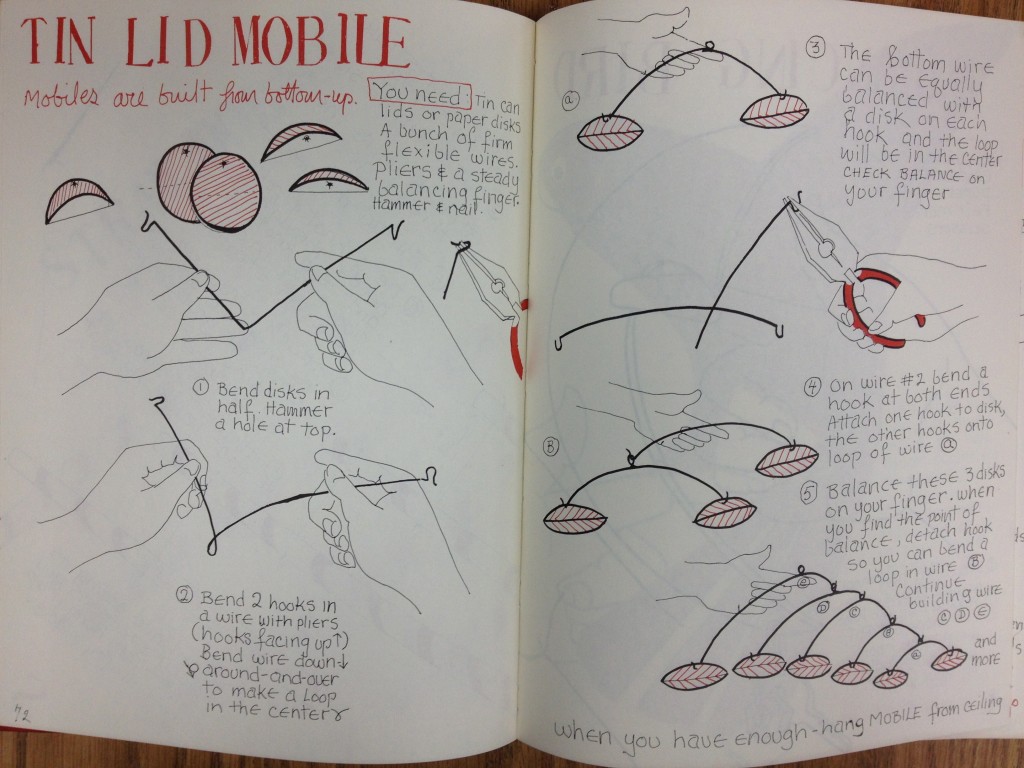 TIN LID MOBILE
Mobiles are built from bottom-up.
You need: Tin can
lids or paper disks
A bunch of firm
flexible wires.
Pliers & a steady
balancing finger.
Hammer & nail.
① Bend disks in
half. Hammer
a hole at top.
② Bend 2 hooks in
a wire with pliers
(hooks facing up↑)
Bend wire down↓
around-and-over
to make a loop
in the center
72
③ The bottom wire
can be equally
balanced with
a disk on each
hook and the loop
will be in the center
CHECK BALANCE on
your finger
ⓐ
④ On wire #2 bend a
hook at both ends
Attach one hook to disk,
the other hooks onto
loop of wire ⓐ
Ⓑ
⑤ Balance these 3 disks
on your finger. when
you find the point of
balance, detach hook
so you can bend a
loop in wire Ⓑ
Continue
building wire
Ⓒ Ⓓ Ⓔ
and
more
Ⓔ
Ⓓ
Ⓒ
Ⓑ
ⓐ
when you have enough-hang MOBILE from ceiling